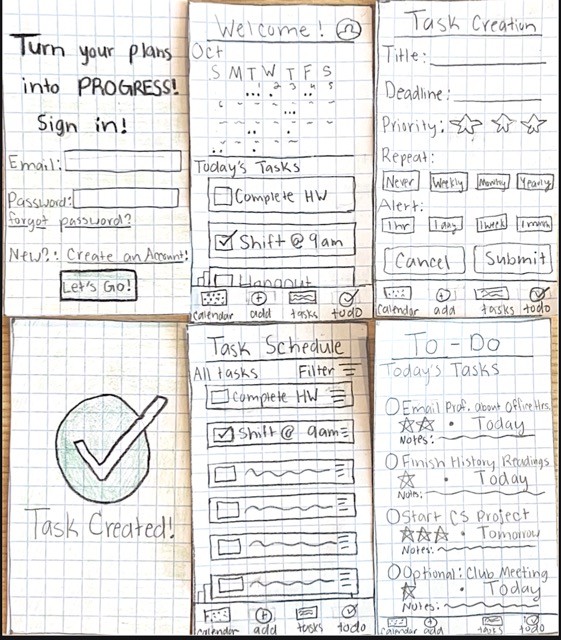 Turn your plans
into PROGRESS!
Sign in!
Email:
Password:
forgot password?
New?: Create an Account!
Let's Go!
Welcome!
Oct
S M T W T F S
Today's Tasks
Complete HW
Shift @ 9am
Hangout
calendar add tasks todo
Task Creation
Title:
Deadline:
Priority:
Repeat:
Never Weekly Monthly Yearly
Alert:
1 hr 1 day 1 week 1 month
Cancel Submit
calendar add tasks todo
Task Created!
Task Schedule
All tasks Filter
Complete HW
Shift @ 9am
calendar add tasks todo
To-Do
Today's Tasks
Email Prof. about Office Hrs.
• Today
Notes:
Finish History Readings
• Today
Notes:
Start CS Project
• Tomorrow
Notes:
Optional: Club Meeting
• Today
Notes:
calendar add tasks todo